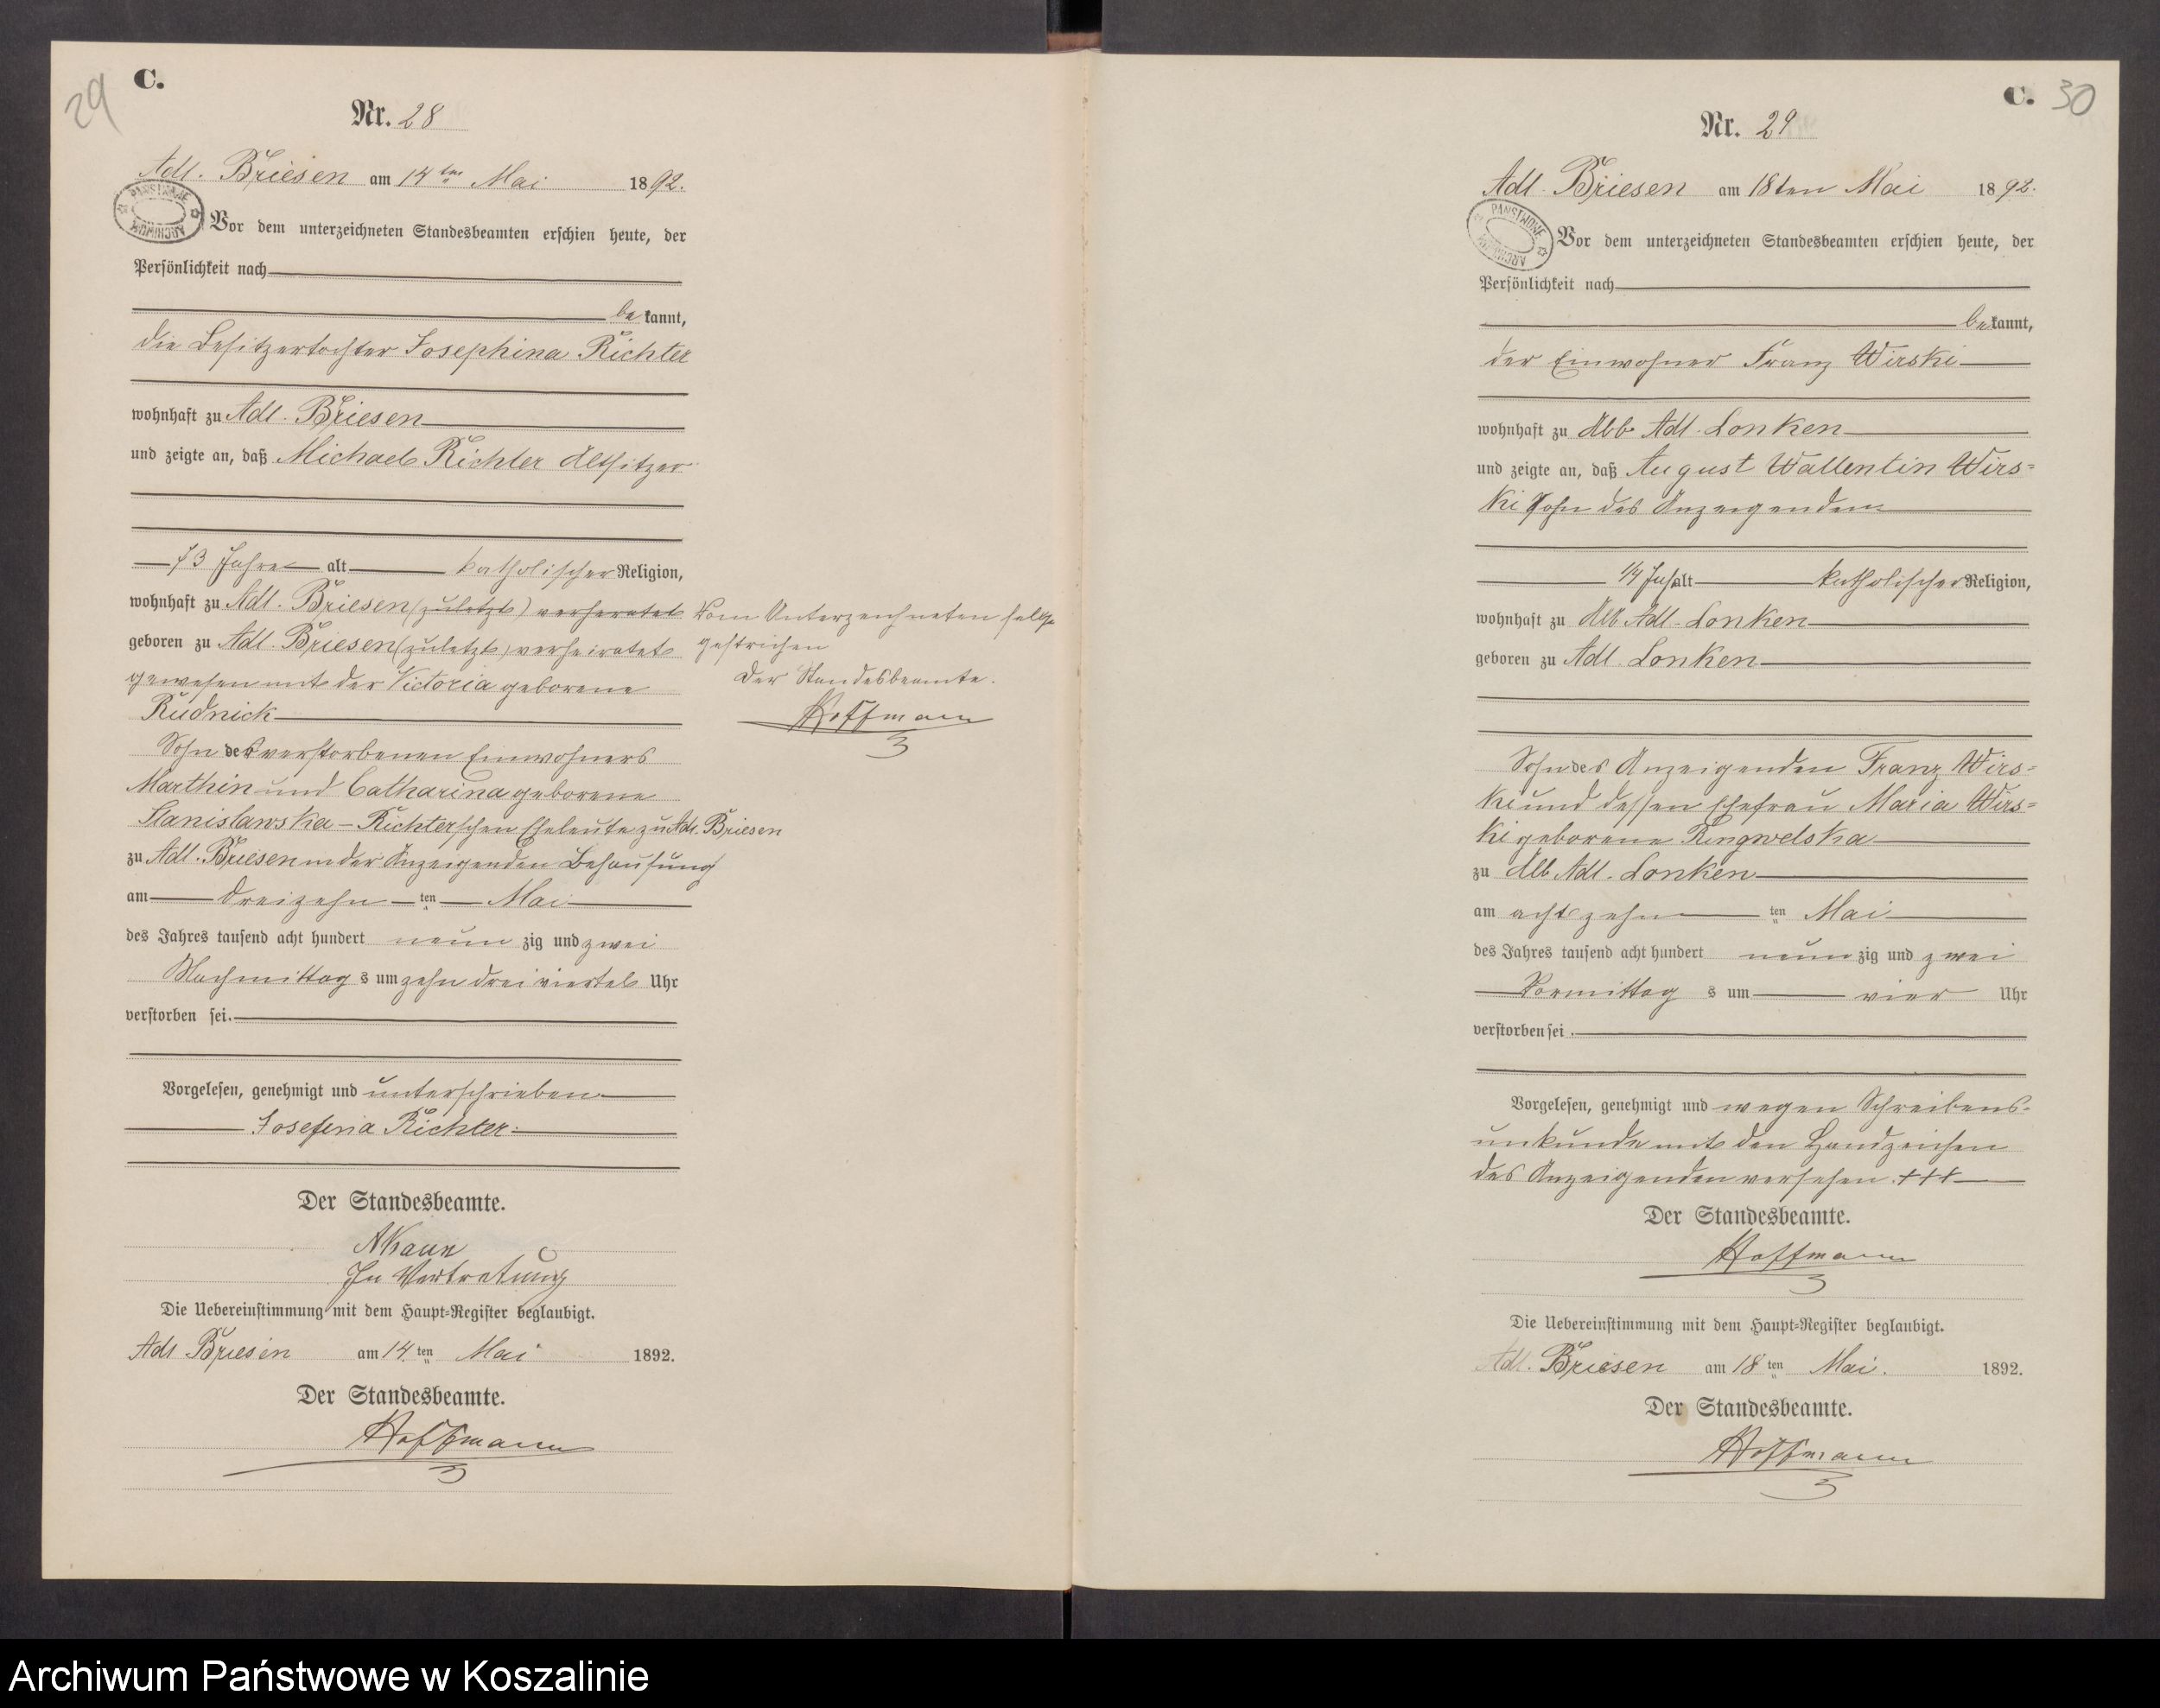 29
C.
Nr. 28
Adl. Briesen am 14ten Mai 1892.
PAŃSTWOWE ARCHIWUM
Vor dem unterzeichneten Standesbeamten erschien heute, der
Persönlichkeit nach
bekannt,
die Besitzertochter Josephina Richter
wohnhaft zu Adl. Briesen
und zeigte an, daß Michael Richter Altsitzer
73 Jahre alt katholischer Religion,
wohnhaft zu Adl. Briesen (zuletzt) verheratet
geboren zu Adl. Briesen (zuletzt) verheiratet
gewesen mit der Victoria geborene
Rudnick
Vom Unterzeichneten
gestrichen
Der Standesbeamte.
Hoffmann
Sohn des verstorbenen Einwohners
Marthin und Catharina geborene
Stanislawska - Richterschen Eheleute zu Adl. Briesen
zu Adl. Briesen in der Anzeigenden Behausung
am dreizehn ten Mai
des Jahres tausend acht hundert neun zig und zwei
Nachmittag s um zehn drei viertel Uhr
verstorben sei.
Vorgelesen, genehmigt und unterschrieben
Josefina Richter.
Der Standesbeamte.
In Vertretung
Die Uebereinstimmung mit dem Haupt-Register beglaubigt.
Adl Briesen am 14.ten Mai 1892.
Der Standesbeamte.
Hoffmann
C.
30
Nr. 29
Adl. Briesen am 18ten Mai 1892.
PAŃSTWOWE ARCHIWUM
Vor dem unterzeichneten Standesbeamten erschien heute, der
Persönlichkeit nach
bekannt,
der Einwohner Franz Wirski
wohnhaft zu Abb Adl. Lonken
und zeigte an, daß August Wallentin Wirs=
ki Sohn des Anzeigenden
1/4 Jah alt katholischer Religion,
wohnhaft zu Abb Adl. Lonken
geboren zu Adl. Lonken
Sohn des Anzeigenden Franz Wirs=
ki und dessen Ehefrau Maria Wirs=
ki geborene Ringwelska
zu Abb Adl. Lonken
am acht zehn ten Mai
des Jahres tausend acht hundert neun zig und zwei
Vormittag s um vier Uhr
verstorben sei.
Vorgelesen, genehmigt und wegen Schreibens-
unkunde mit den Handzeichen
des Anzeigenden versehen. +++
Der Standesbeamte.
Hoffmann
Die Uebereinstimmung mit dem Haupt-Register beglaubigt.
Adl. Briesen am 18 ten Mai. 1892.
Der Standesbeamte.
Hoffmann
Archiwum Państwowe w Koszalinie